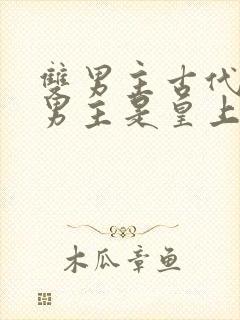 雙男主古代
男主是皇上
木瓜章鱼